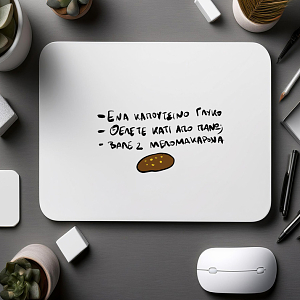 - ΕΝΑ ΚΑΠΟΥΤΣΙΝΟ ΓΛΥΚΟ
- ΘΕΛΕΤΕ ΚΑΤΙ ΑΠΟ ΠΑΝΩ;
- ΒΑΛΕ 2 ΜΕΛΟΜΑΚΑΡΟΝΑ